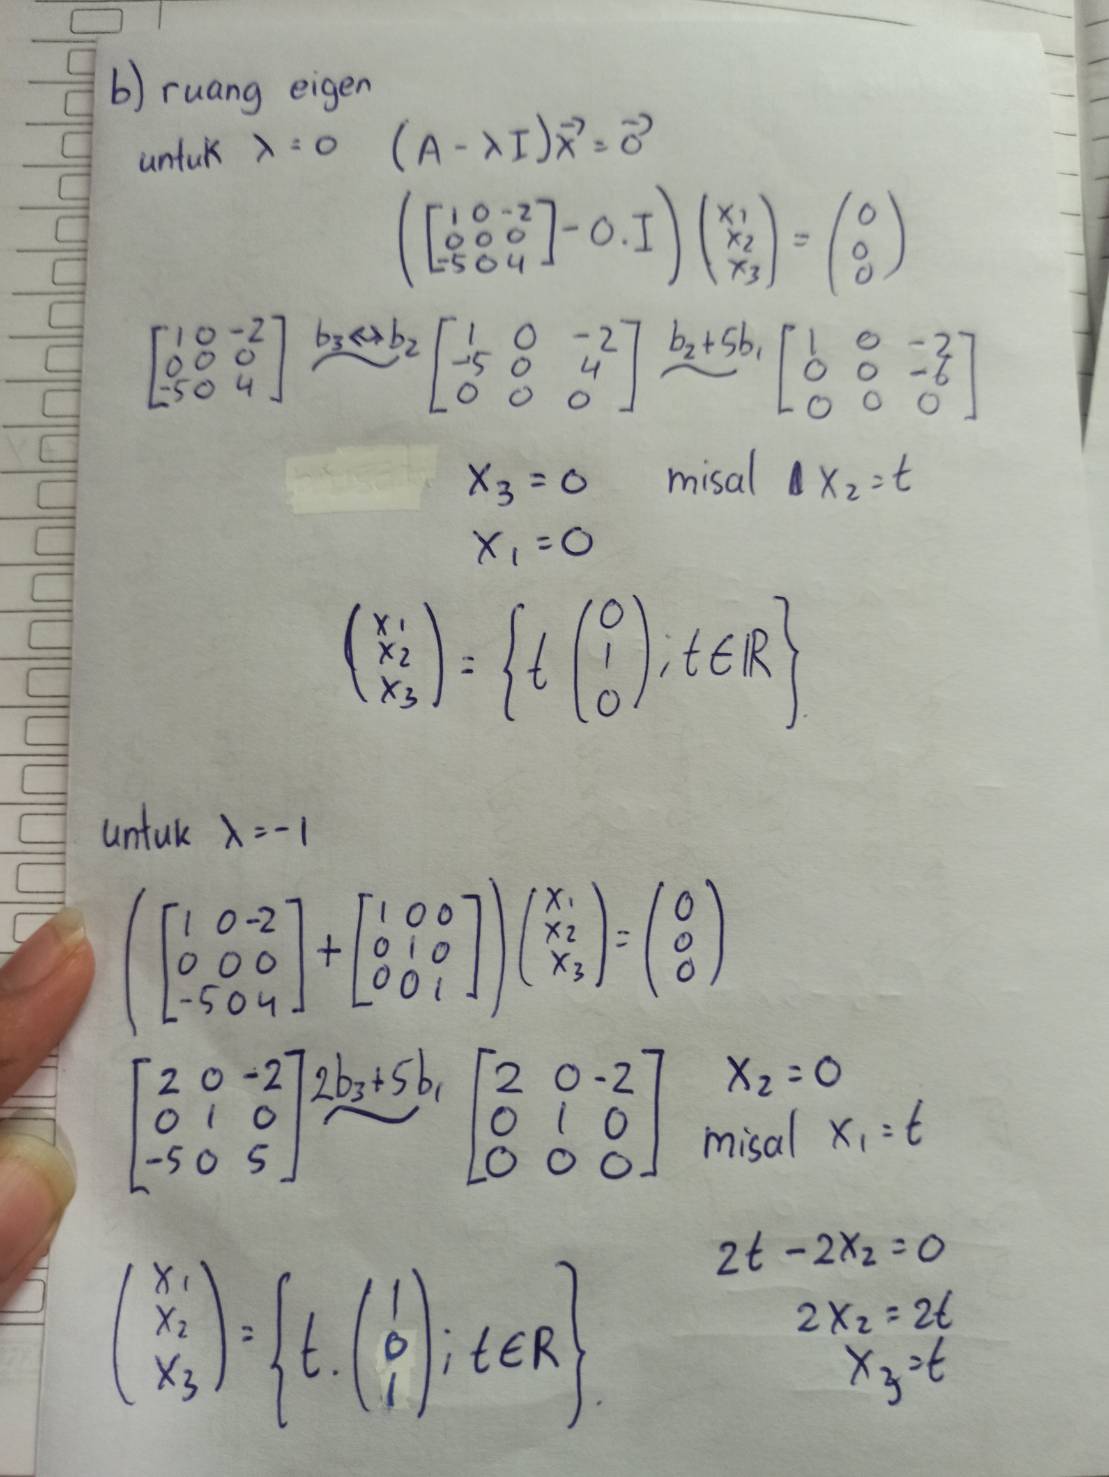 b) ruang eigen
untuk λ = 0 (A - λI)x⃗ = 0⃗
([1 0 -2; 0 0 0; -5 0 4] - 0.I) (x₁; x₂; x₃) = (0; 0; 0)
[1 0 -2; 0 0 0; -5 0 4] b₃↔b₂ ~ [1 0 -2; -5 0 4; 0 0 0] b₂+5b₁ ~ [1 0 -2; 0 0 -6; 0 0 0]
x₃ = 0 misal x₂ = t
x₁ = 0
(x₁; x₂; x₃) = {t (0; 1; 0); t ∈ ℝ}.
untuk λ = -1
([1 0 -2; 0 0 0; -5 0 4] + [1 0 0; 0 1 0; 0 0 1]) (x₁; x₂; x₃) = (0; 0; 0)
[2 0 -2; 0 1 0; -5 0 5] 2b₃+5b₁ ~ [2 0 -2; 0 1 0; 0 0 0] x₂ = 0
misal x₁ = t
2t - 2x₂ = 0
2x₂ = 2t
x₃ = t
(x₁; x₂; x₃) = {t. (1; 0; 1); t ∈ R}.